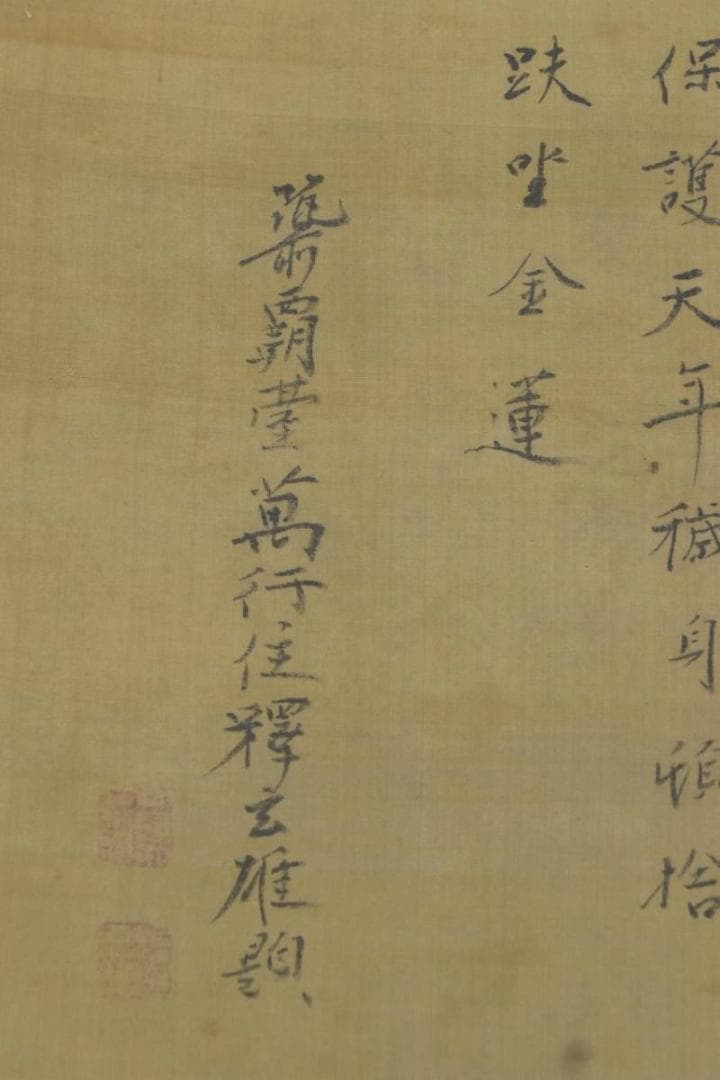 保護天年穢身頓捨
趺坐金蓮
築覇臺萬行住釋玄雄題